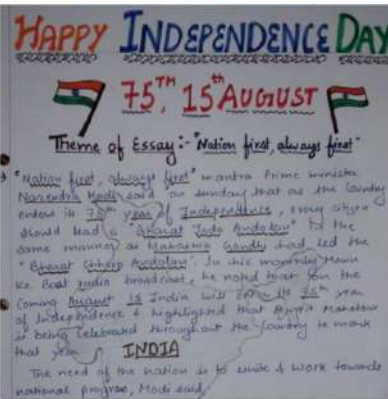 HAPPY INDEPENDENCE DAY
75TH, 15th AUGUST
Theme of Essay:- "Nation first, always first"
"Nation first, always first" mantra Prime minister
Narendra Modi said on sunday that as the Country
enters in 75th year of Independence, every citizen
should lead a "Bharat Jodo Andolan" in the
same manner as Mahatma Gandhi had led the
"Bharat Chhoro Andolan". In his monthly Mann
Ke Baat radio broadcast, he noted that on the
Coming August 15 India will enter its 75th year
of Independence & highlighted that Amrit Mahotsav
is being Celebrated throughout the Country to mark
that year.
INDIA
The need of the nation is to unite & work towards
national progress, Modi said.